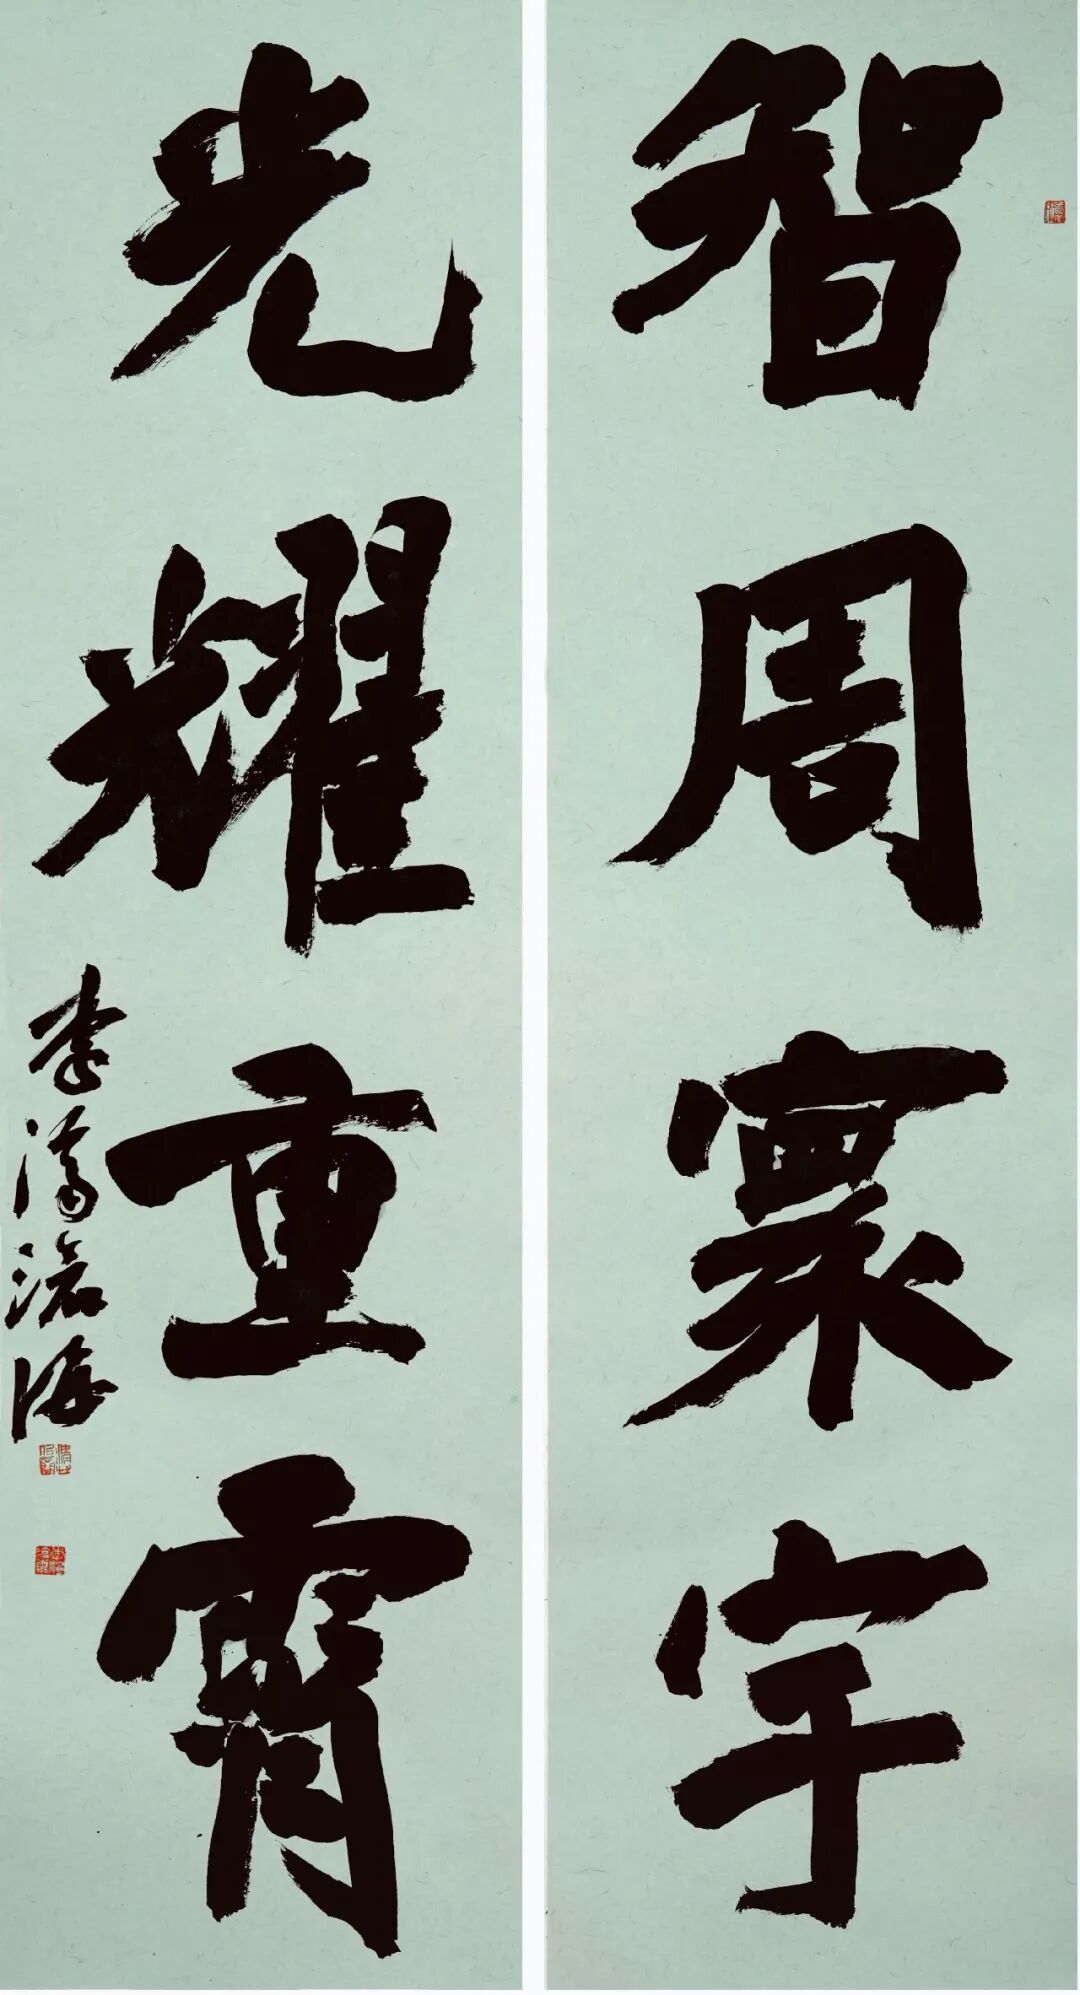 智周寰宇
光耀重霄
李滄海